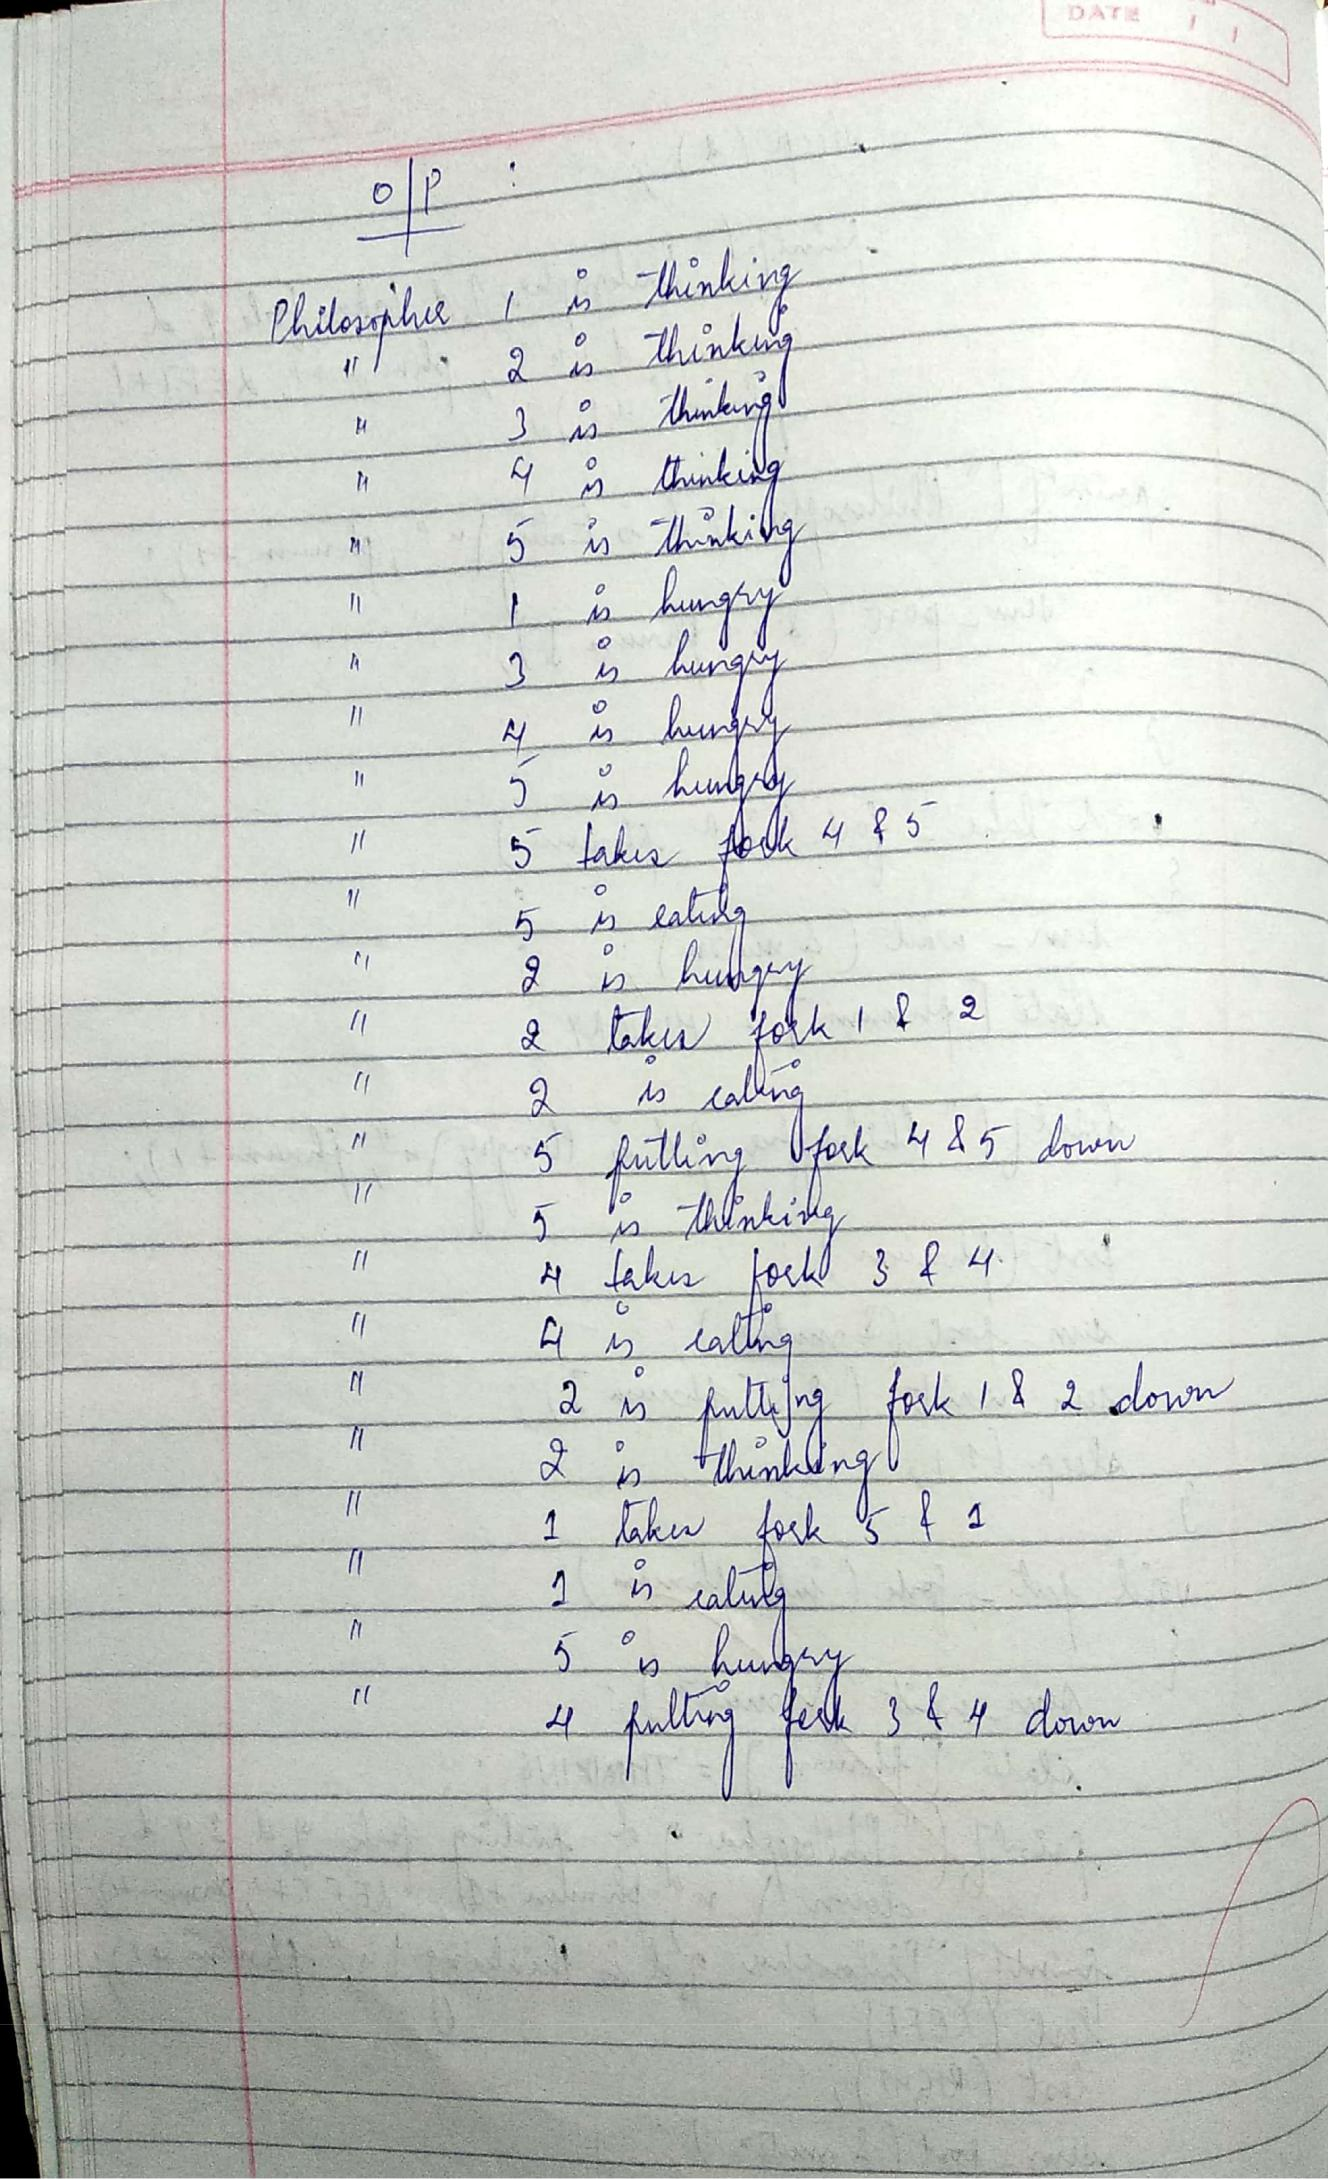 DATE / /
O/P :
Philosopher 1 is thinking
" 2 is thinking
" 3 is thinking
" 4 is thinking
" 5 is thinking
" 1 is hungry
" 3 is hungry
" 4 is hungry
" 5 is hungry
" 5 takes fork 4 & 5
" 5 is eating
" 2 is hungry
" 2 takes fork 1 & 2
" 2 is eating
" 5 putting fork 4 & 5 down
" 5 is thinking
" 4 takes fork 3 & 4
" 4 is eating
" 2 is putting fork 1 & 2 down
" 2 is thinking
" 1 takes fork 5 & 1
" 1 is eating
" 5 is hungry
" 4 putting fork 3 & 4 down